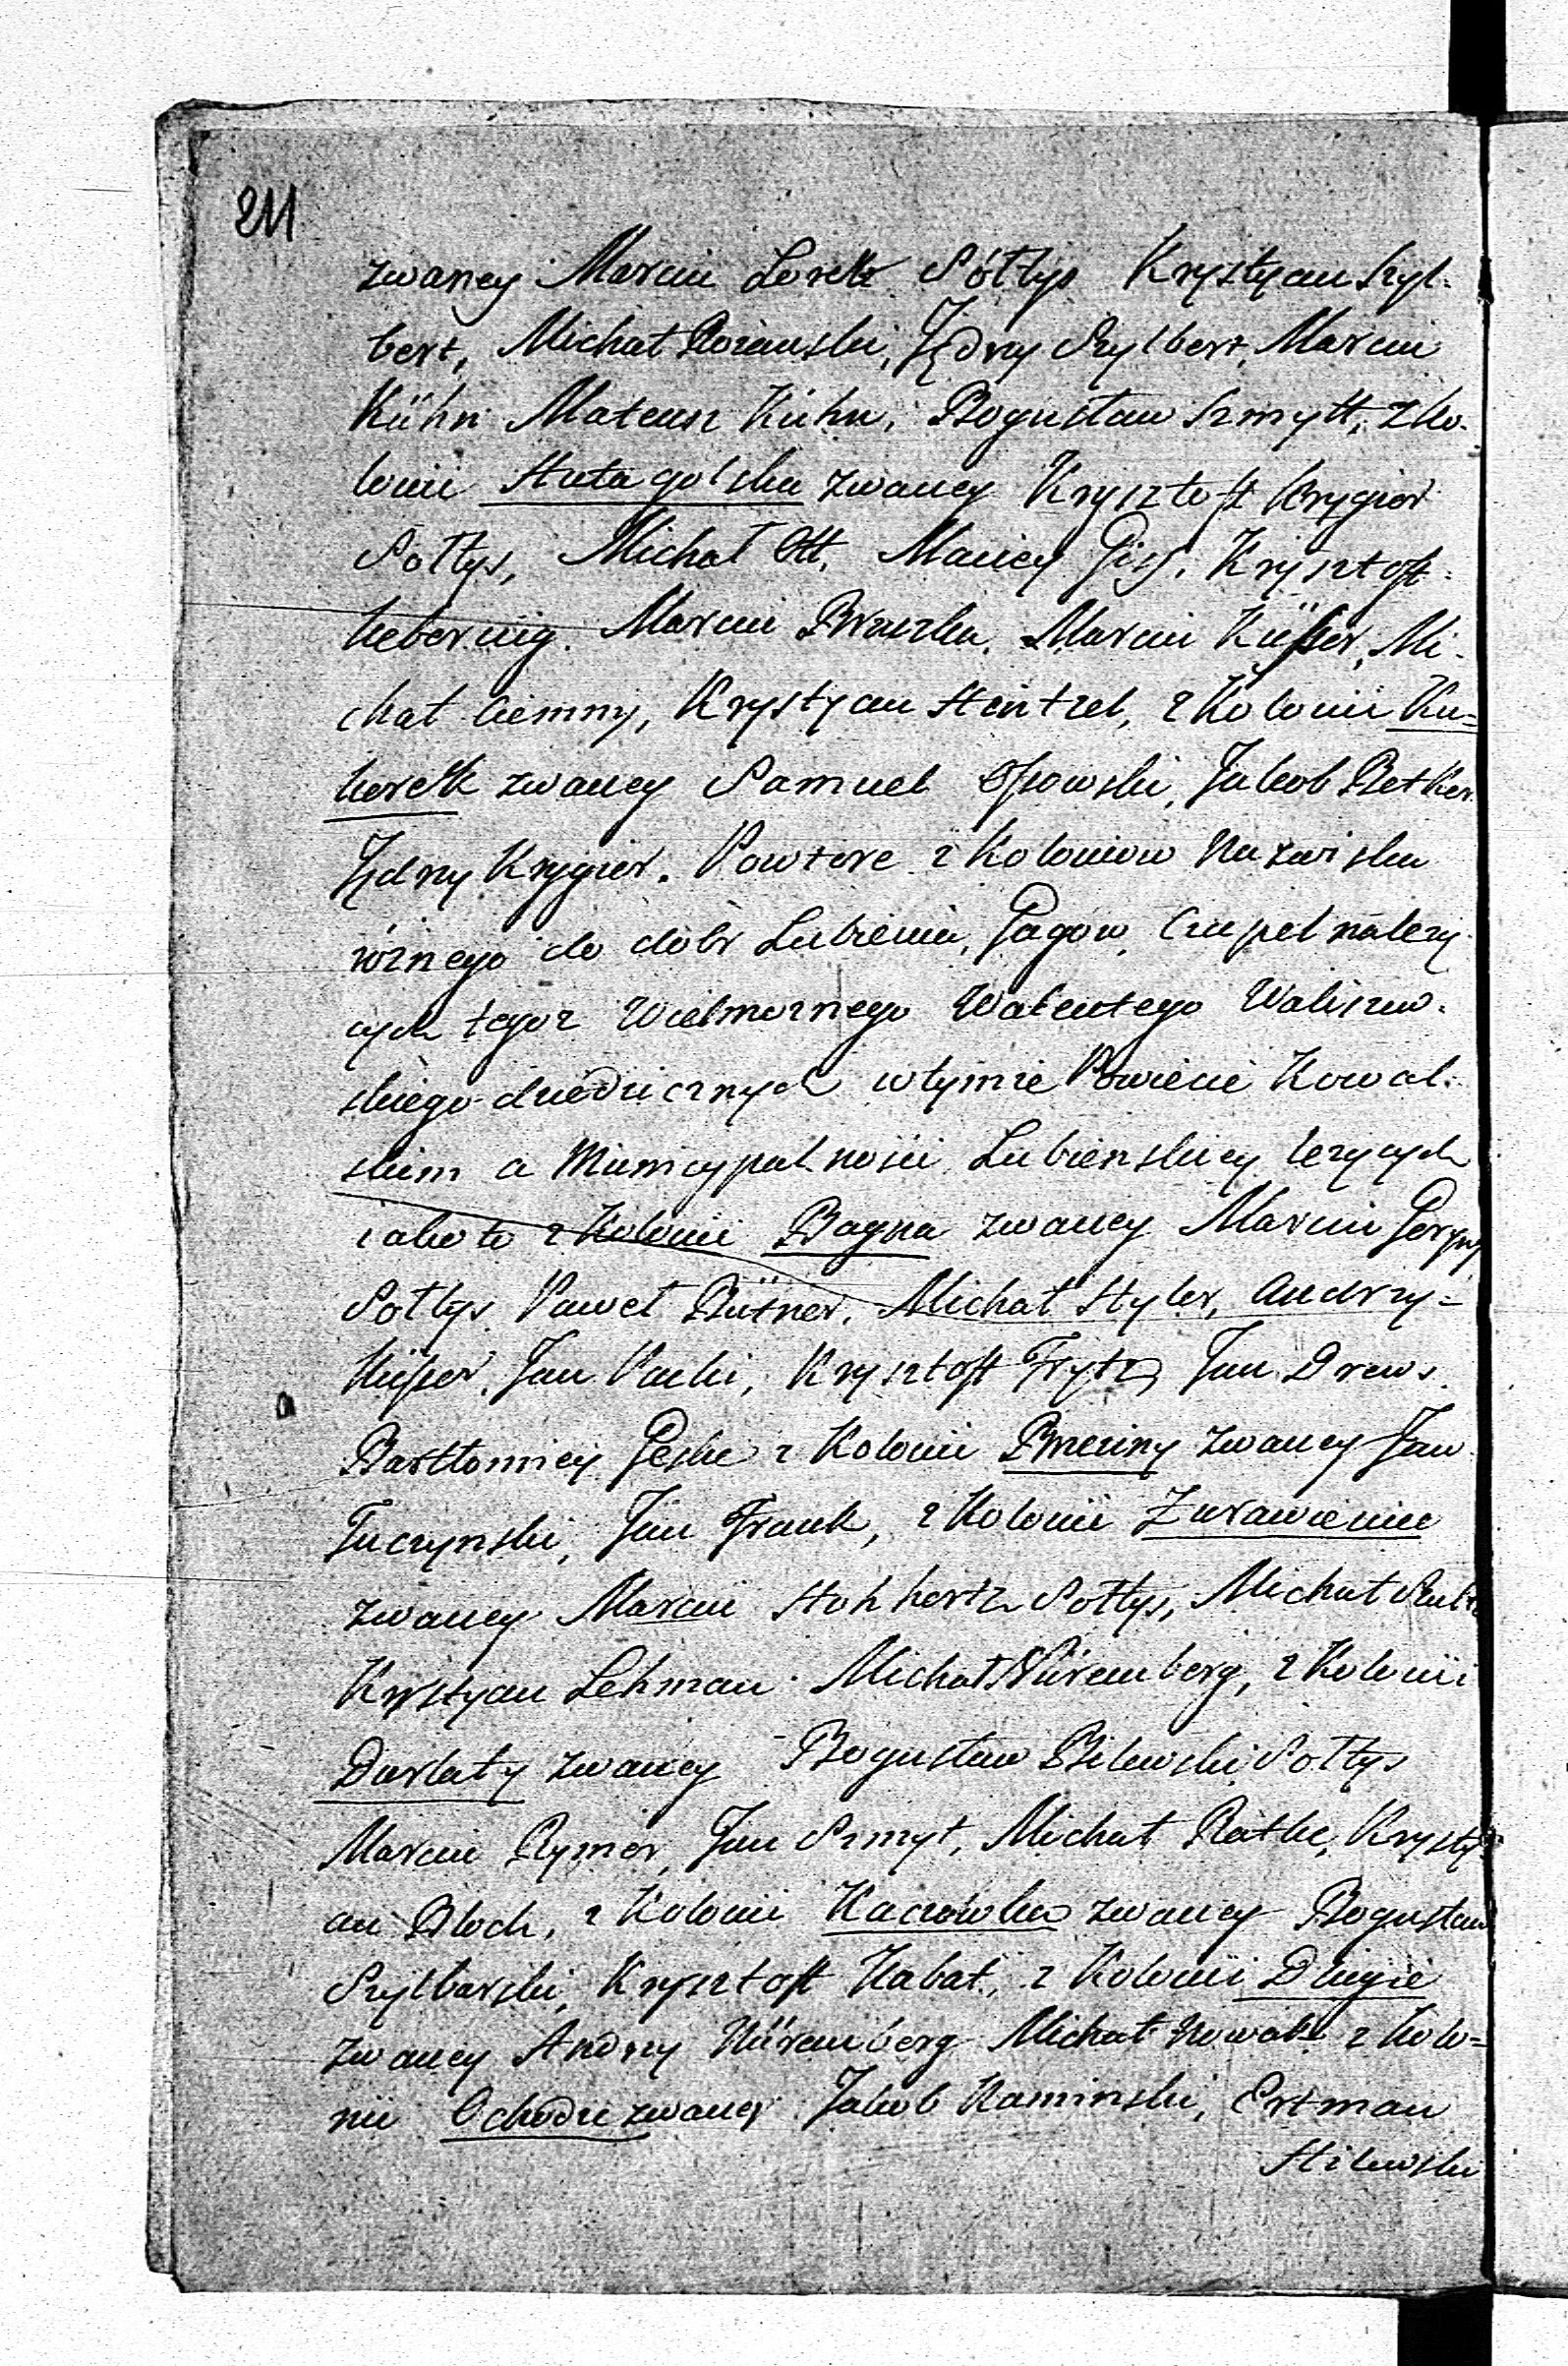 211
zwaney Marcin Lorek Sółtys Krystyan Szyl-
bert, Michał Rozanski, Jędrzy Szylbert, Marcin
Kühn Mateusz Kühn, Bogusław Szmytt, z Ko-
lonii Huta golska zwaney Krysztoft Krygier
Soltys, Michał Ott, Maciey Giss, Krysztoft
Marcin Marcin Küsser, Mi-
chał Ciemny, Krystyan Hentzel, z Kolonii Ku-
korek zwaney Samuel Ossowski, Jakob Betker
Jędrzy Krygier. Powtore z Koloniow Nazwiska
róznego do dóbr Lubienia, Gagow, Czapel należy-
cych tegoz Wielmoznego Walentego Waliszew-
skiego dziedzicznych w tymze Powiecie Kowal-
skim a Municypalnosci Lubienskiey lezycych
iako to z Kolonii Bagna zwaney Marcin
Soltys Paweł Bütner, Michał Hyler, Andrzy
Küsser, Jan Packi, Krysztoft Frytz Jan Drews
Bartłomiey Peske z Kolonii Brzeziny zwaney Jan
Tuczynski, Jan Frank, z Kolonii Zurawieniec
zwaney Marcin Hohhertz Sołtys, Michał
Krystyan Lehman Michał Nürenberg, z Kolonii
Darłaty zwaney Bogusław Bilewski Sołtys
Marcin Rymer, Jan Szmyt, Michał Ratke, Krysty-
an Bloch, z Kolonii Kaczówka zwaney Bogusław
Szylbarski, Krysztoft Kabat, z Kolonii Długie
zwaney Andrzy Nürenberg Michał Nowak z Kolo-
nii Ochodze zwaney Jakob Kaminski, Ertman
Hilewski